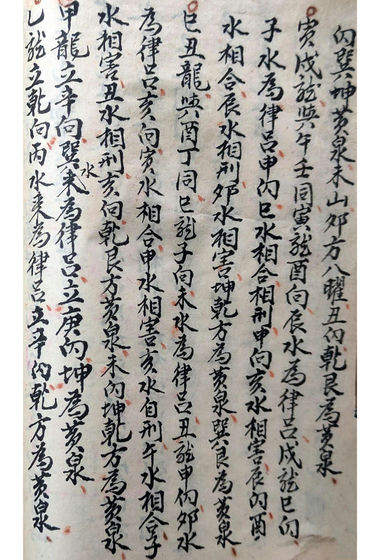 向巽坤黄泉未山卯方八曜丑向乾艮為黄泉
寅戍龍與午壬同寅龍酉向辰水為律吕戍龍巳向
子水為律吕申向巳水相合相刑申向亥水相害辰向酉
水相合辰水相刑卯水相害坤乾方為黄泉巽艮為黄泉
巳丑龍與酉丁同巳龍子向未水為律吕丑龍申向卯水
為律吕亥向寅水相合申水相害亥水自刑午水相合子
水相害丑水相刑亥向乾艮方黄泉未向坤乾方為黄泉
甲龍立辛向巽水来為律吕立庚向坤為黄泉
乙龍立乾向丙水来為律吕立辛向乾方為黄泉